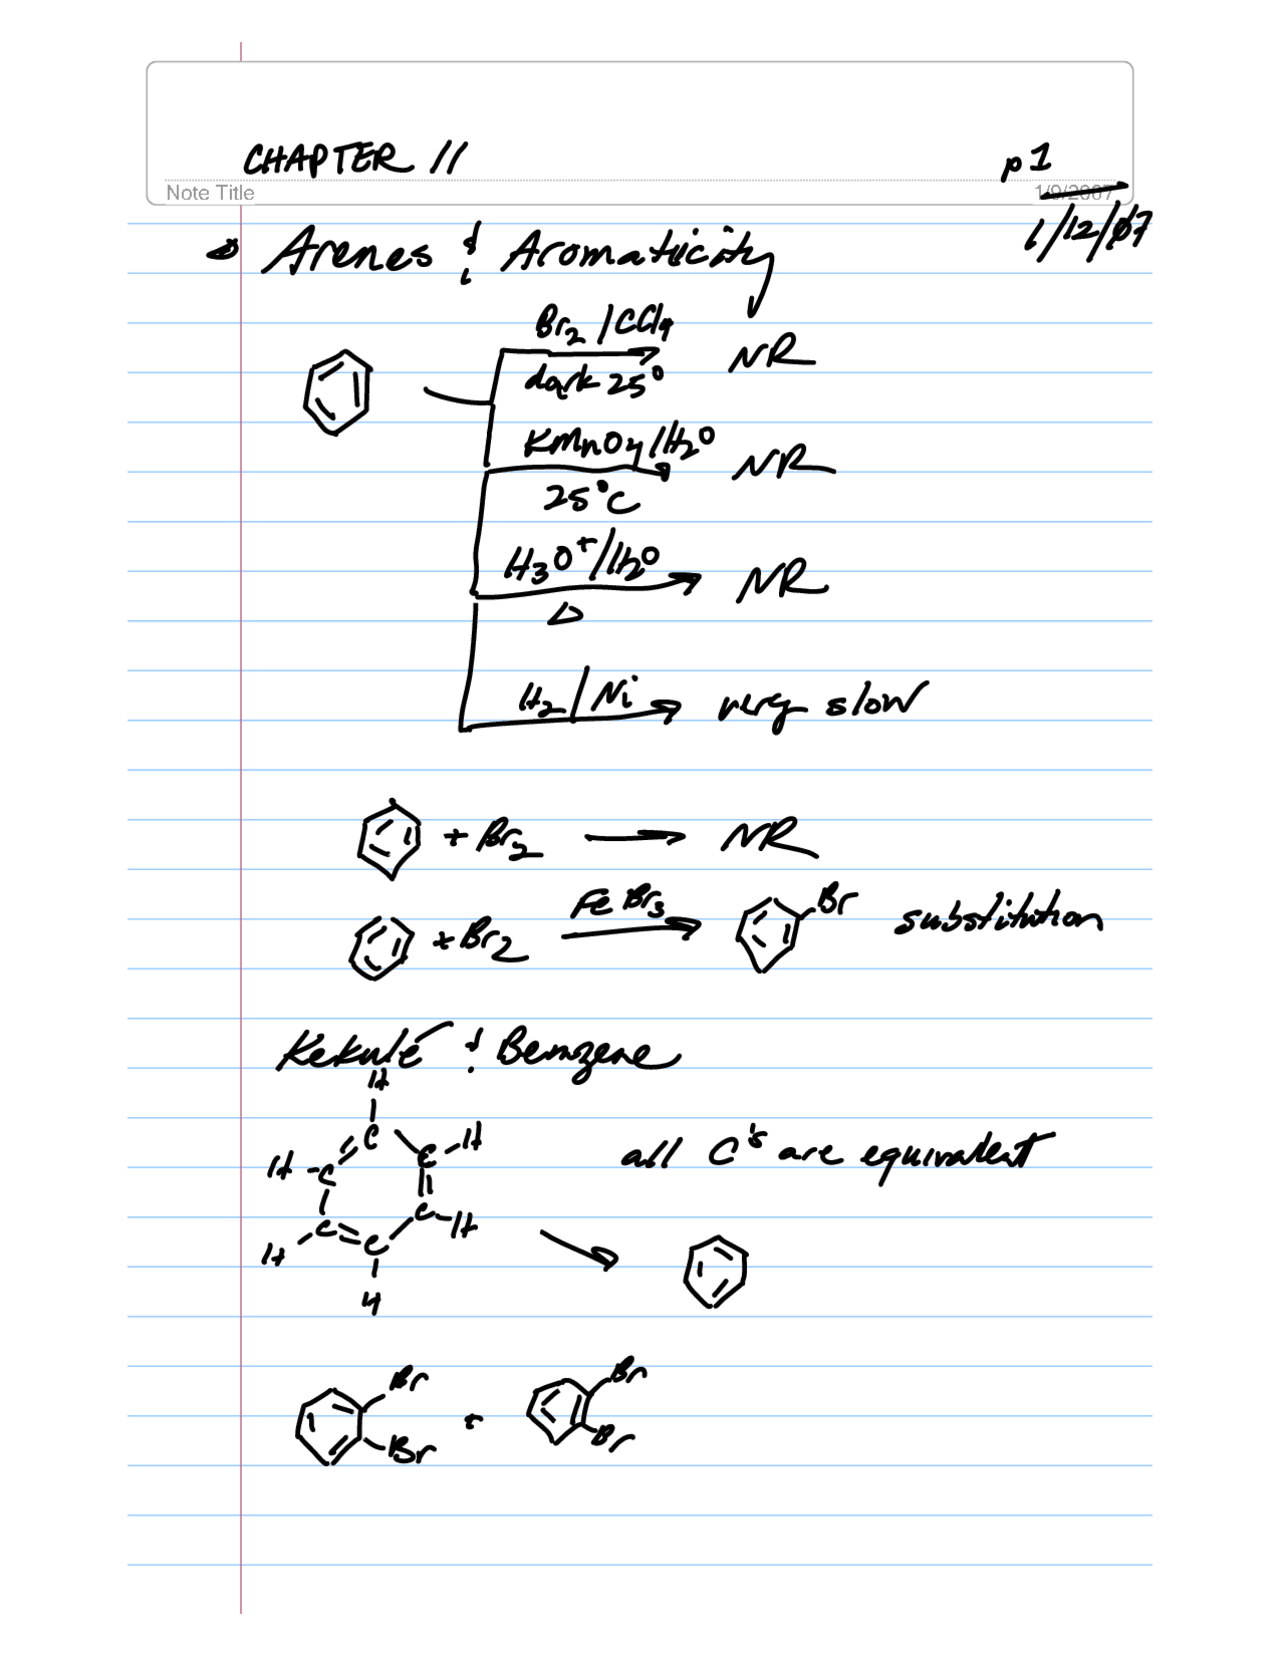 CHAPTER 11 p1
Note Title 1/9/2007
1/12/07
Arenes & Aromaticity
Br2 / CCl4 NR
dark 25°
KMnO4/H2O NR
25°C
H3O+/H2O NR
Δ
H2 / Ni very slow
+ Br2 NR
+ Br2 FeBr3 Br substitution
Kekulé & Benzene
H
C C-H all C's are equivalent
H-C
C-H
H C C
H
Br + Br
Br Br